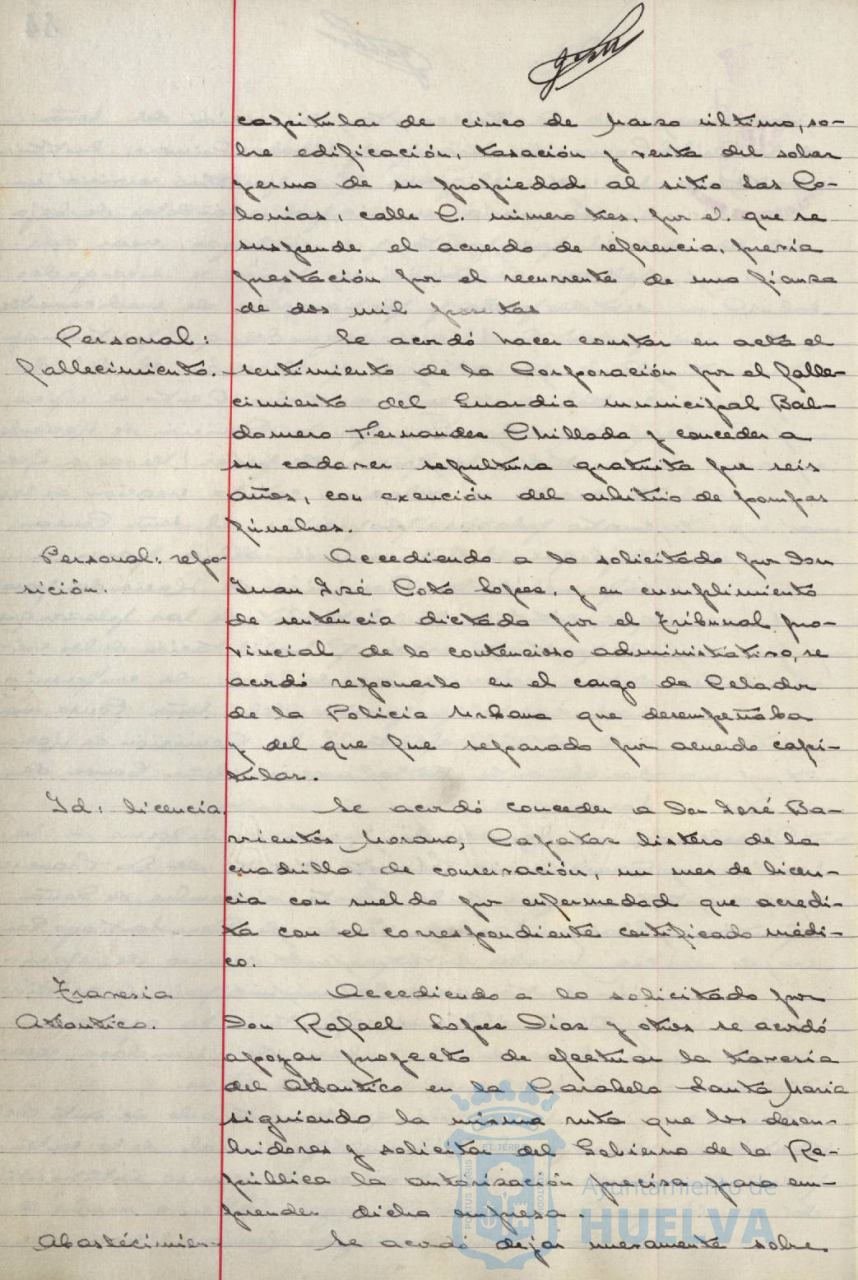 capitular de cinco de Marzo último, so-
bre edificación, tasación y venta del solar
yermo de su propiedad al sitio Las Co-
lonias, calle C. número tres, por el que se
suspende el acuerdo de referencia, previa
prestación por el recurrente de una fianza
de dos mil pesetas
Personal:
fallecimiento.
Se acordó hacer constar en acta el
sentimiento de la Corporación por el falle-
cimiento del Guardia municipal Bal-
domero Fernandez Chillada y conceder a
su cadaver sepultura gratuita por seis
años, con exención del arbitrio de pompas
fúnebres.
Personal: repo-
sición.
Accediendo a lo solicitado por Don
Juan José Coto Lopez, y en cumplimiento
de sentencia dictada por el Tribunal pro-
vincial de lo contencioso administrativo, se
acordó reponerlo en el cargo de Celador
de la Policia Urbana que desempeñaba
y del que fue separado por acuerdo capi-
tular.
Id: licencia.
Se acordó conceder a Don José Ba-
rrientos Morano, Capataz listero de la
cuadrilla de conservación, un mes de licen-
cia con sueldo por enfermedad que acredi-
ta con el correspondiente certificado médi-
co.
Travesia
Atlantico.
Accediendo a lo solicitado por
Don Rafael Lopez Diaz y otros se acordó
apoyar proyecto de efectuar la travesia
del Atlantico en la Carabela Santa Maria
siguiendo la misma ruta que los descu-
bridores y solicitar del Gobierno de la Re-
pública la autorización precisa para em-
prender dicha empresa.
Abastecimien-
Se acordó dejar nuevamente sobre
Ayuntamiento de
HUELVA